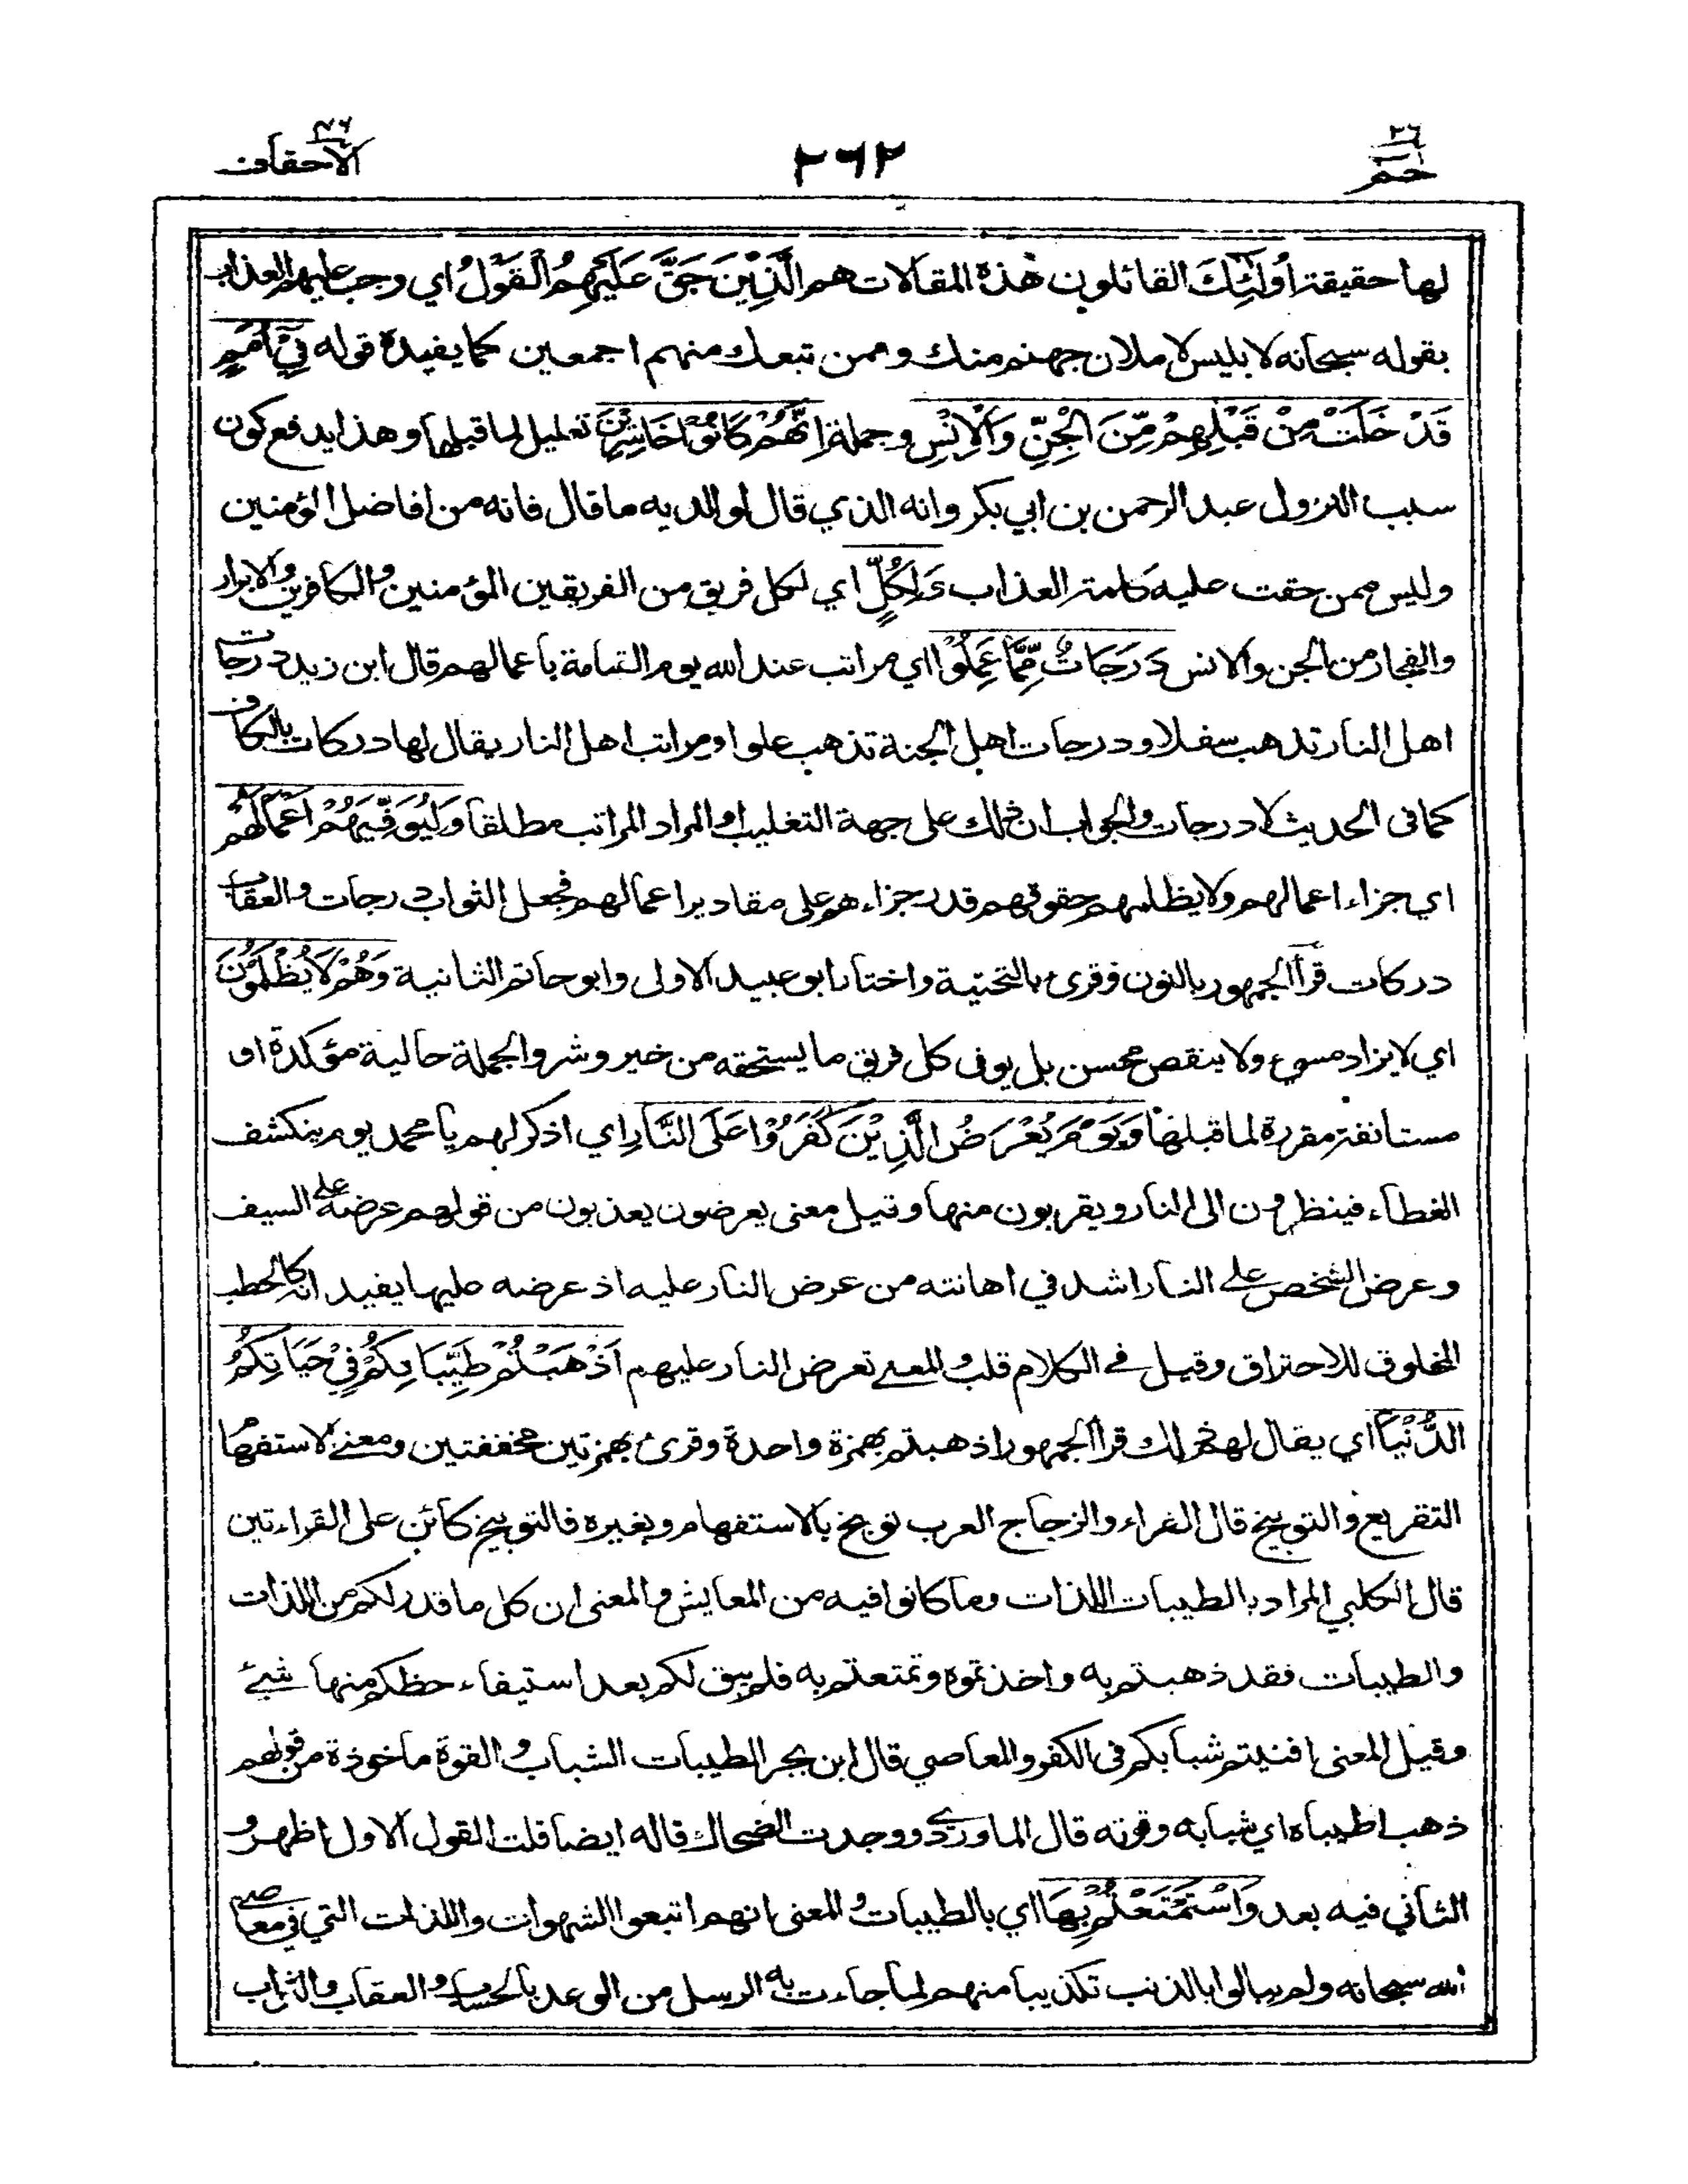 حم ٢٦
٢٦٢
الاحقاف ٤٦
لها حقيقة أُولَٰئِكَ القائلون هذه المقالات هم الَّذِيْنَ حَقَّ عَلَيْهِمُ الْقَوْلُ اي وجب عليهم العذاب
بقوله سبحانه لابليس لاملان جهنم منك وممن تبعك منهم اجمعين كما يفيده قوله فِيْٓ اُمَمٍ
قَدْ خَلَتْ مِنْ قَبْلِهِمْ مِّنَ الْجِنِّ وَالْاِنْسِ وجملة اِنَّهُمْ كَانُوْا خَاسِرِيْنَ تعليل لما قبلها وهذا يدفع كون
سبب النزول عبد الرحمن بن ابي بكر وانه الذي قال لوالديه ما قال فانه من افاضل المؤمنين
وليس ممن حقت عليه كلمة العذاب وَلِكُلٍّ اي لكل فريق من الفريقين المؤمنين والكافرين والابرار
والفجار من الجن والانس دَرَجَاتٌ مِّمَّا عَمِلُوْا اي مراتب عند الله يوم القيامة باعمالهم قال ابن زيد درجات
اهل النار تذهب سفلا ودرجات اهل الجنة تذهب علوا ومراتب اهل النار يقال لها دركات بالكاف
كما في الحديث لا درجات والجواب ان ذلك على جهة التغليب او المراد المراتب مطلقا وَلِيُوَفِّيَهُمْ اَعْمَالَهُمْ
اي جزاء اعمالهم ولا يظلمهم حقوقهم قدر جزاءهم على مقادير اعمالهم فجعل الثواب درجات والعقاب
دركات قرأ الجمهور بالنون وقرئ بالتحتية واختار ابو عبيد الاولى وابو حاتم الثانية وَهُمْ لَا يُظْلَمُوْنَ
اي لا يزاد مسيئ ولا ينقص محسن بل يوفى كل فريق ما يستحقه من خير وشر والجملة حالية مؤكدة او
مستانفة مقررة لما قبلها وَيَوْمَ يُعْرَضُ الَّذِيْنَ كَفَرُوْا عَلَى النَّارِ اي اذكر لهم يا محمد يوم ينكشف
الغطاء فينظرون الى النار ويقربون منها وقيل معنى يعرضون يعذبون من قولهم عرضه على السيف
وعرض الشخص على النار اشد في اهانته من عرض النار عليه اذ عرضه عليها يفيد انه كالحطب
المخلوق للاحتراق وقيل في الكلام قلب والمعنى تعرض النار عليهم اَذْهَبْتُمْ طَيِّبَاتِكُمْ فِيْ حَيَاتِكُمُ
الدُّنْيَا اي يقال لهم ذلك قرأ الجمهور اذهبتم بهمزة واحدة وقرئ بهمزتين مخففتين ومعنى الاستفهام
التقريع والتوبيخ قال الفراء والزجاج العرب توبخ بالاستفهام وبغيره فالتوبيخ كائن على القراءتين
قال الكلبي المراد بالطيبات اللذات وما كانوا فيه من المعايش والمعنى ان كل ما قدر لكم من اللذات
والطيبات فقد ذهبتم به واخذتموه وتمتعتم به فلم يبق لكم بعد استيفاء حظكم منها شيئ
وقيل المعنى افنيتم شبابكم في الكفر والمعاصي قال ابن بحر الطيبات الشباب والقوة ماخوذة من قولهم
ذهب اطيباه اي شبابه وقوته قال الماوردي ووجدت الضحاك قاله ايضا قلت القول الاول اظهر و
الثاني فيه بعد وَاسْتَمْتَعْتُمْ بِهَا اي بالطيبات والمعنى انهم اتبعوا الشهوات واللذات التي في معاصي
الله سبحانه ولم يبالوا بالذنب تكذيبا منهم لما جاءت به الرسل من الوعد بالحساب والعقاب والثواب